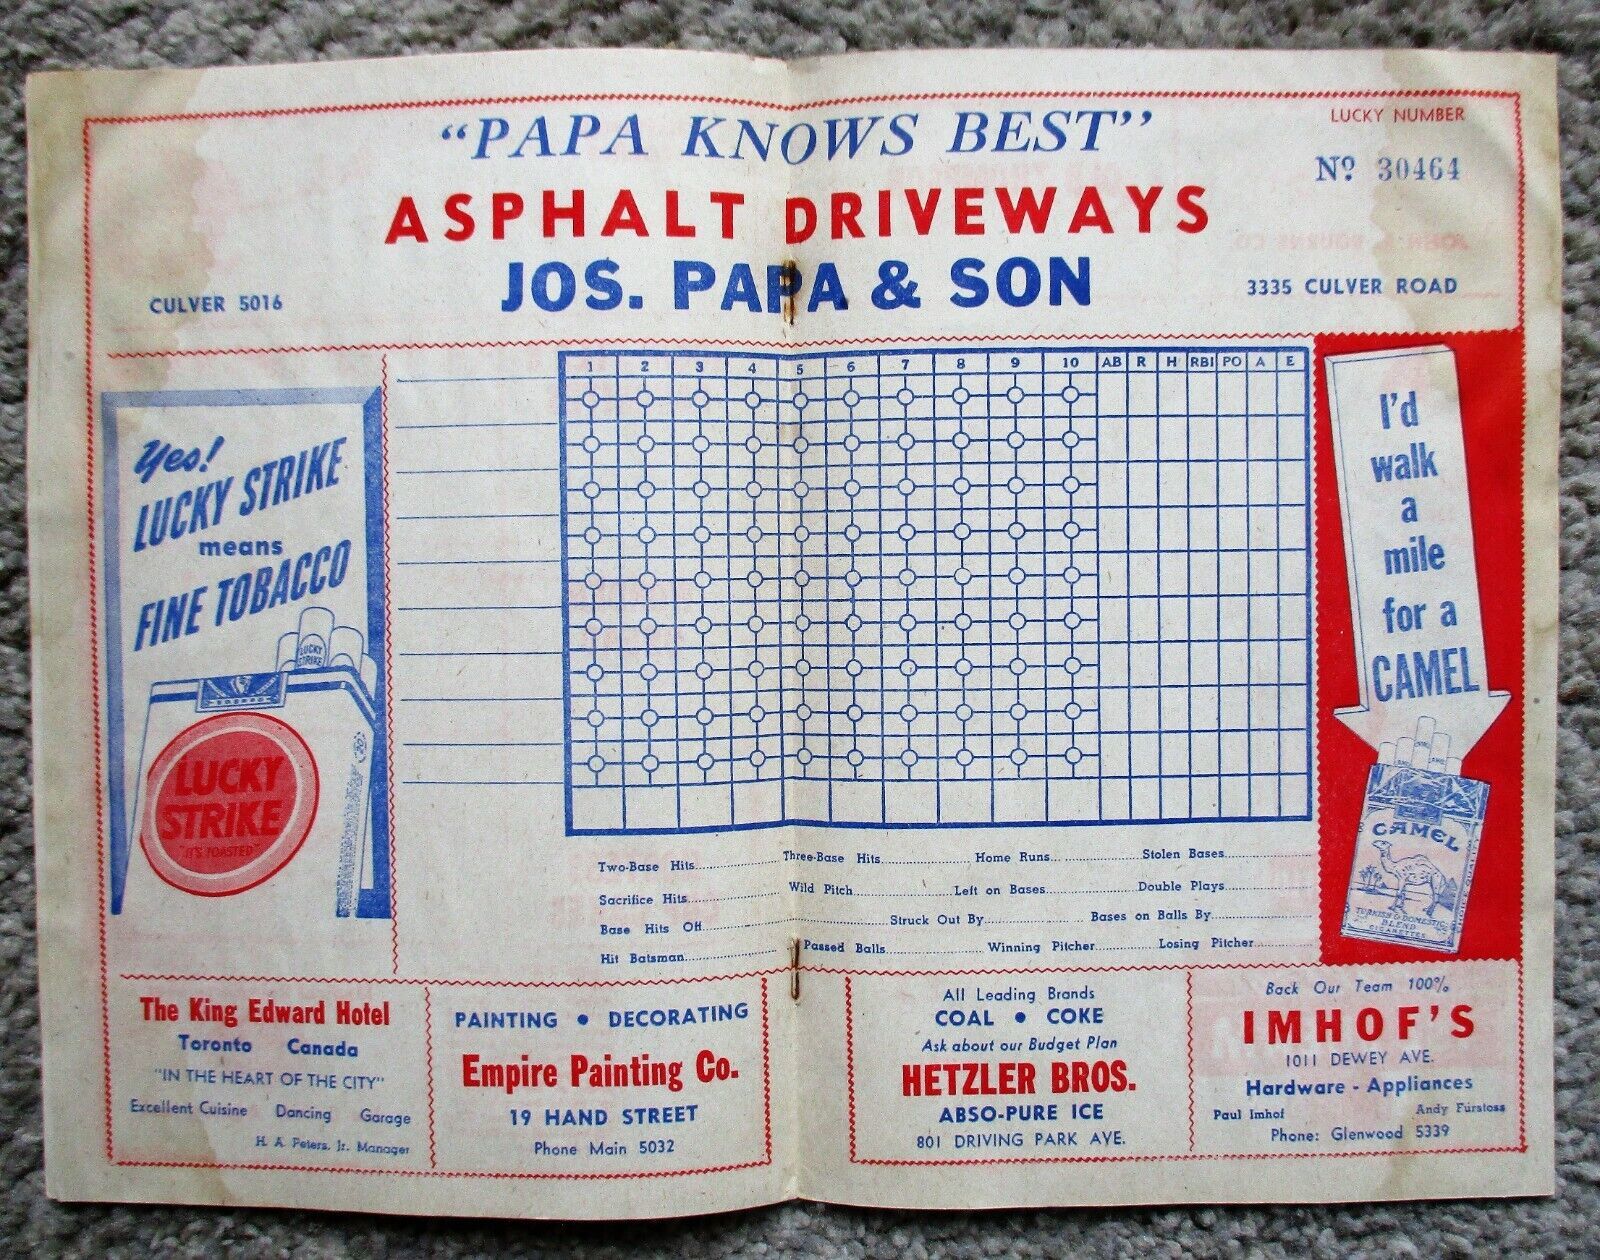 "PAPA KNOWS BEST"
LUCKY NUMBER
Nº 30464
ASPHALT DRIVEWAYS
CULVER 5016
JOS. PAPA & SON
3335 CULVER ROAD
Yes!
LUCKY STRIKE
means
FINE TOBACCO
LUCKY
STRIKE
LUCKY
STRIKE
"IT'S TOASTED"
1 2 3 4 5 6 7 8 9 10 AB R H RBI PO A E
Two-Base Hits Three-Base Hits Home Runs Stolen Bases
Sacrifice Hits Wild Pitch Left on Bases Double Plays
Base Hits Off Struck Out By Bases on Balls By
Hit Batsman Passed Balls Winning Pitcher Losing Pitcher
I'd
walk
a
mile
for a
CAMEL
CAMEL
TURKISH & DOMESTIC
BLEND
CIGARETTES
The King Edward Hotel
Toronto Canada
"IN THE HEART OF THE CITY"
Excellent Cuisine Dancing Garage
H. A. Peters, Jr. Manager
PAINTING • DECORATING
Empire Painting Co.
19 HAND STREET
Phone Main 5032
All Leading Brands
COAL • COKE
Ask about our Budget Plan
HETZLER BROS.
ABSO-PURE ICE
801 DRIVING PARK AVE.
Back Our Team 100%
IMHOF'S
1011 DEWEY AVE.
Hardware - Appliances
Paul Imhof Andy Furstoss
Phone: Glenwood 5339